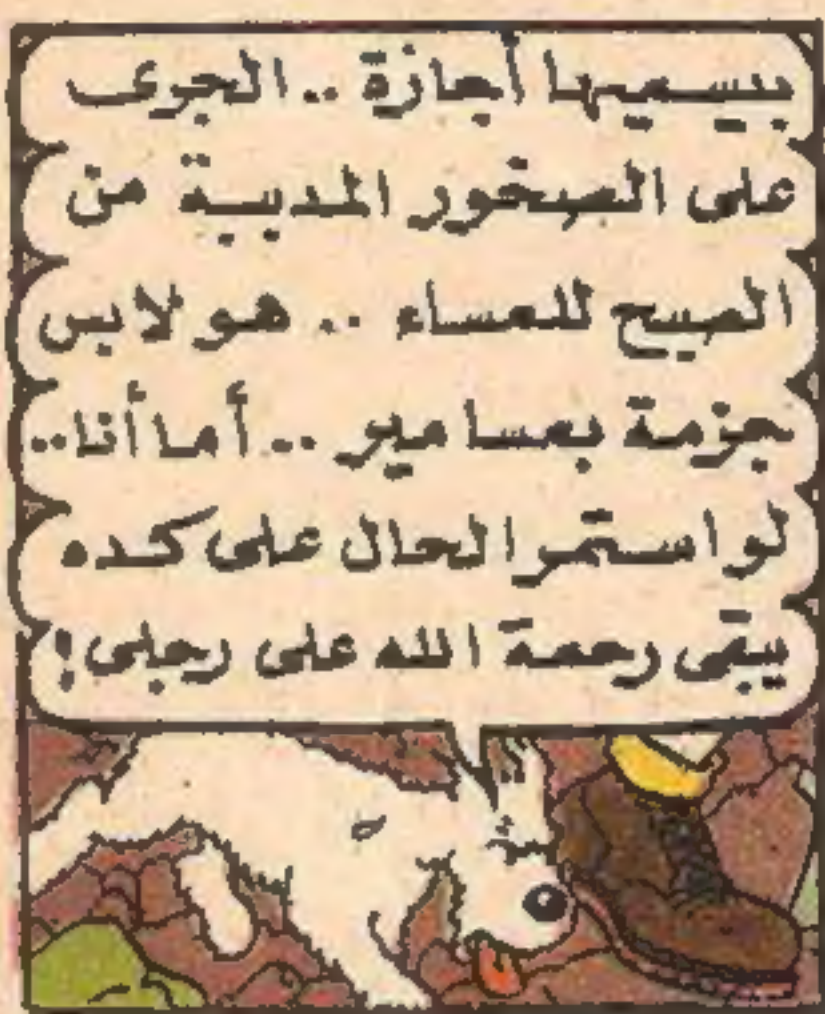 بيسميها أجازة .. الجرى
على الصخور المدببة من
الصبح للمساء .. هو لابس
جزمة بمسامير .. أما أنا..
لو استمر الحال على كده
يبقى رحمة الله على رجلى!